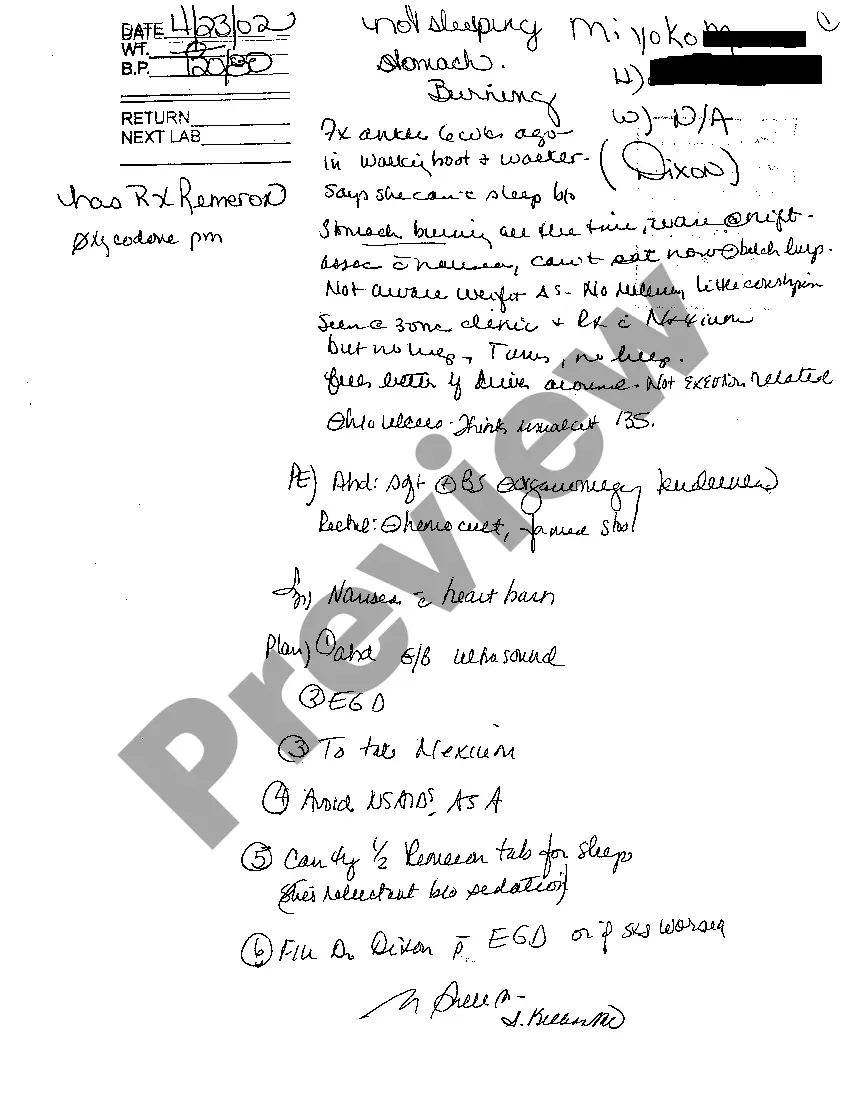 DATE 4/23/02
WT.
B.P. 120/80
RETURN
NEXT LAB
not sleeping
stomach.
Burning
Miyoko M
H)
W) - N/A
(Dixon)
has Rx Remeron
Oxycodone prn
Fx ankle 6 wks ago
in walking boot + walker.
Says she can't sleep b/o
stomach burning all the time, worse @ night.
assoc c̄ nausea, can't eat now
Not aware weight Δs. No
Seen @ zone clinic + Rx c̄ Nexium
but no help, Tums, no help.
feels better if drives around. Not exertion related
⊖ h/o ulcers. Thinks usual wt 135.
PE) Abd: sft ⊕ BS ⊖ organomegaly, tenderness
Rectal: ⊖ hemocult, formed stool
Nausea c̄ heart burn
Plan) ① abd G/B ultrasound
② EGD
③ To take Nexium
④ Avoid NSAIDs, ASA
⑤ Can try 1/2 Remeron tab for sleep
(She's reluctant b/o sedation)
⑥ F/u Dr Dixon p̄ EGD or if sxs worsen
Preview